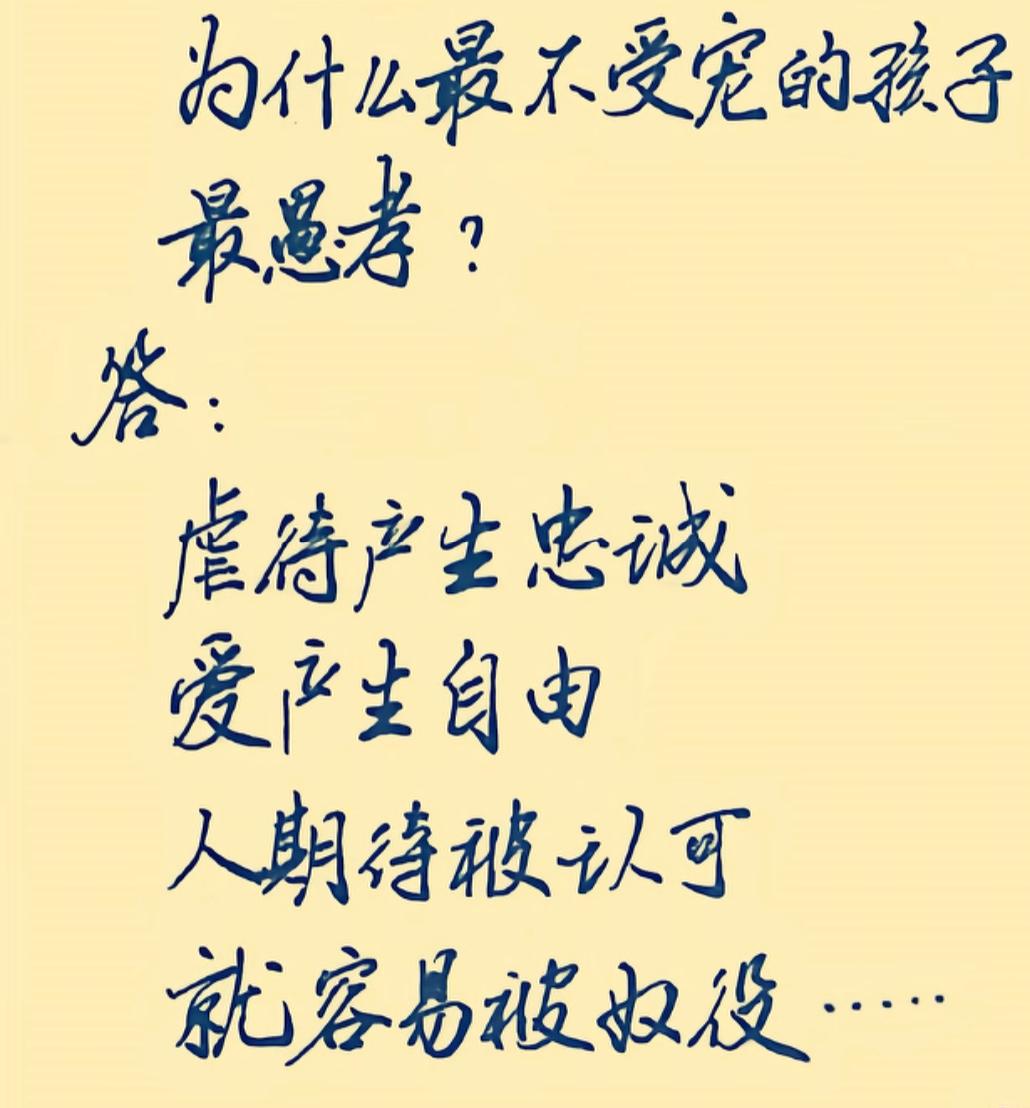 为什么最不受宠的孩子
最愚孝？
答：
虐待产生忠诚
爱产生自由
人期待被认可
就容易被奴役……